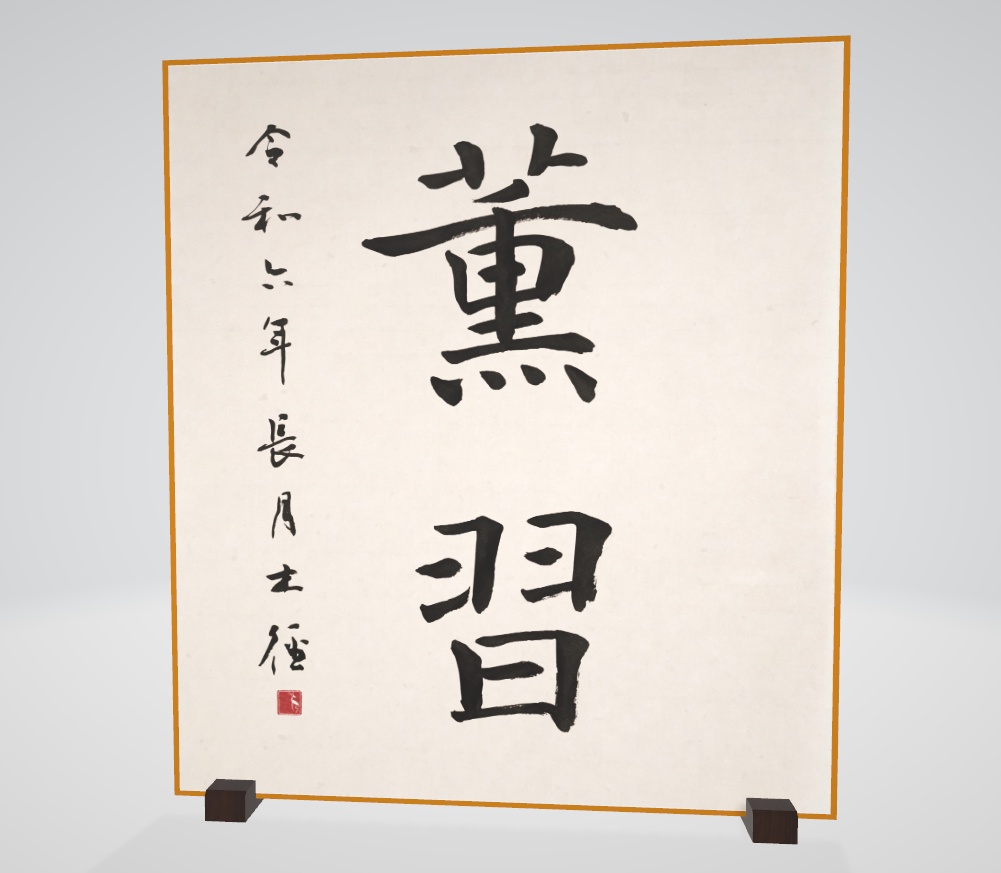 薫習
令和六年長月士徑